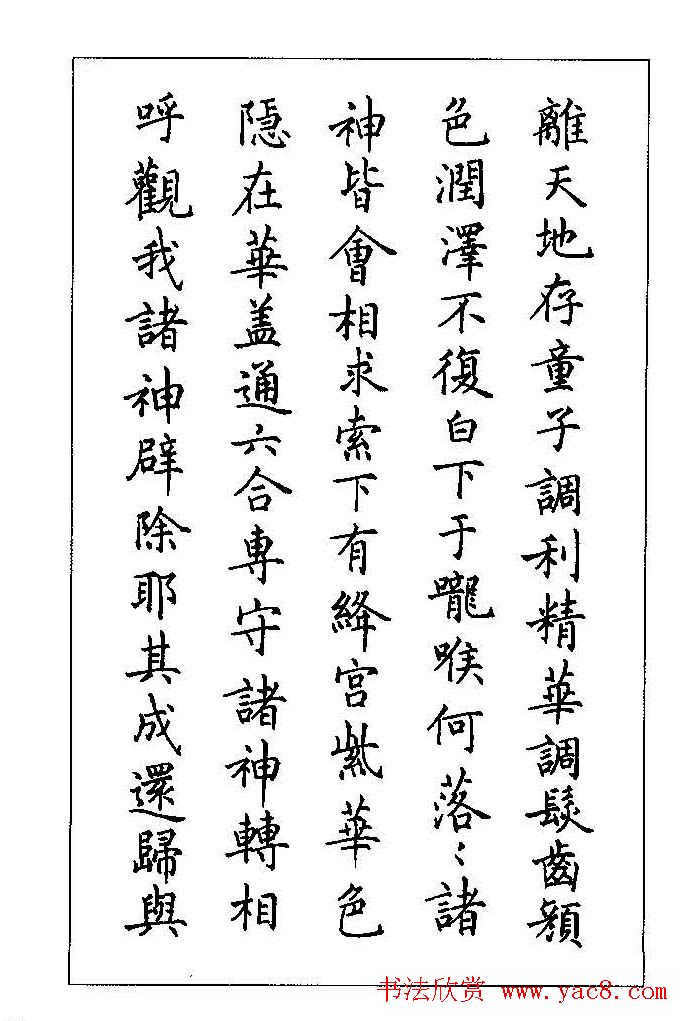 離天地存童子調利精華調髮齒顏
色潤澤不復白下于嚨喉何落〻諸
神皆會相求索下有絳宮紫華色
隱在華盖通六合專守諸神轉相
呼觀我諸神辟除耶其成還歸與
书法欣赏 www.yac8.com